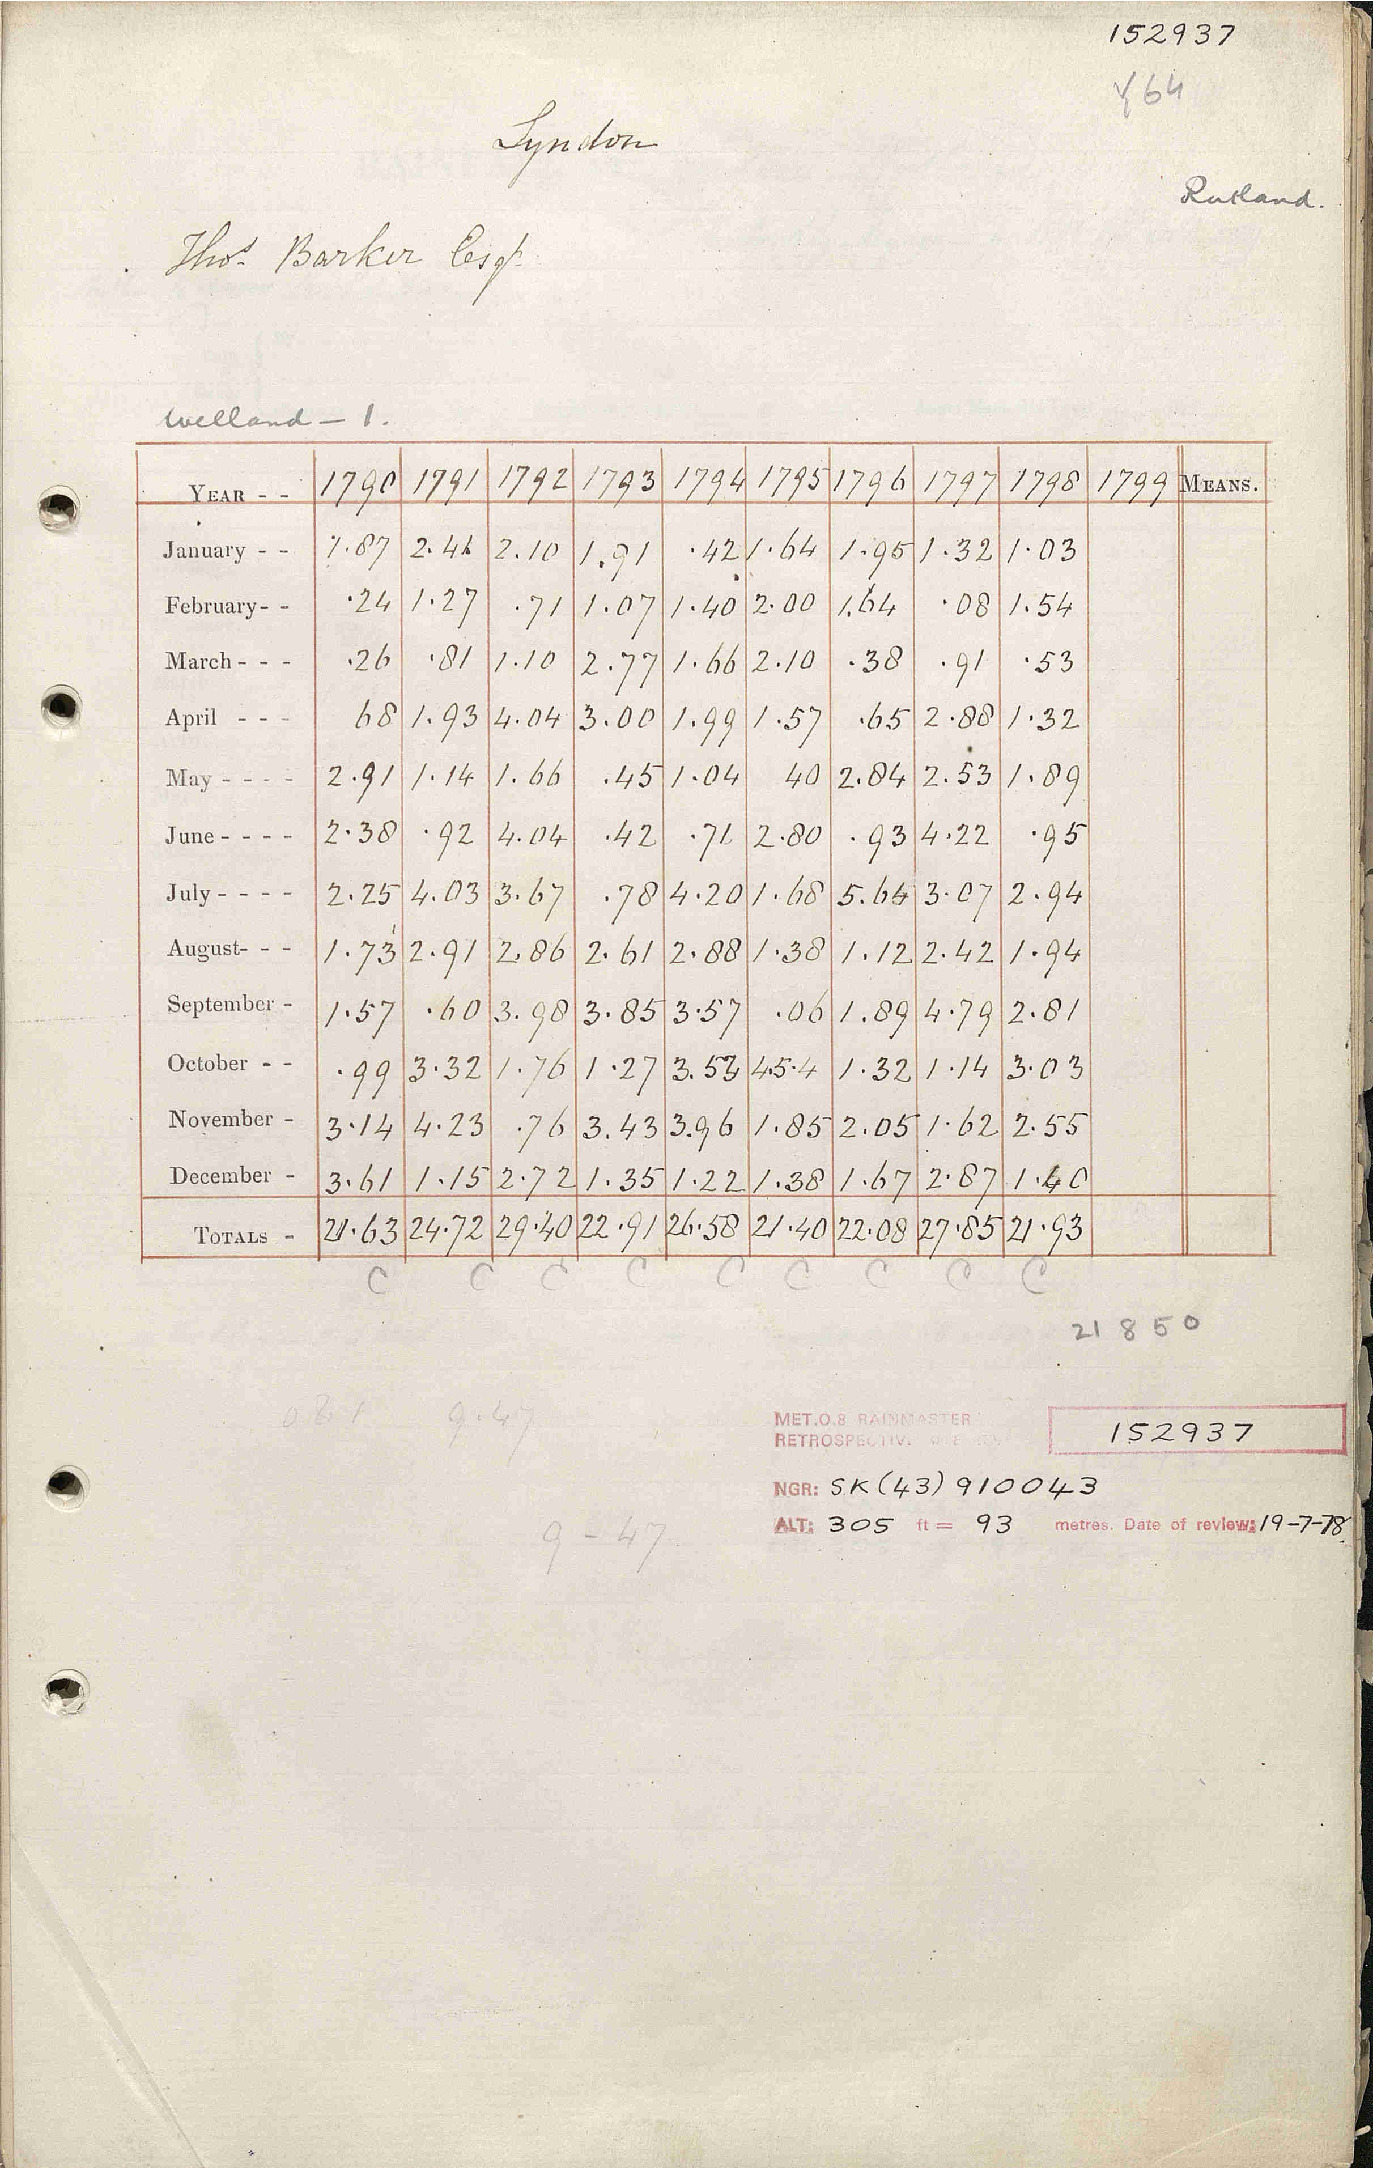 152937
64
Lyndon
Rutland.
Thos. Barker Esqr.
Welland – 1.
YEAR - - 1790 1791 1792 1793 1794 1795 1796 1797 1798 1799 MEANS.
January - - 1.87 2.41 2.10 1.91 .42 1.64 1.95 1.32 1.03
February - - .24 1.27 .71 1.07 1.40 2.00 1.64 .08 1.54
March - - - .26 .81 1.10 2.77 1.66 2.10 .38 .91 .53
April - - - 68 1.93 4.04 3.00 1.99 1.57 .65 2.88 1.32
May - - - - 2.91 1.14 1.66 .45 1.04 40 2.84 2.53 1.89
June - - - - 2.38 .92 4.04 .42 .71 2.80 .93 4.22 .95
July - - - - 2.25 4.03 3.67 .78 4.20 1.68 5.64 3.07 2.94
August - - - 1.73 2.91 2.86 2.61 2.88 1.38 1.12 2.42 1.94
September - 1.57 .60 3.98 3.85 3.57 .06 1.89 4.79 2.81
October - - .99 3.32 1.76 1.27 3.53 4.54 1.32 1.14 3.03
November - 3.14 4.23 .76 3.43 3.96 1.85 2.05 1.62 2.55
December - 3.61 1.15 2.72 1.35 1.22 1.38 1.67 2.87 1.40
TOTALS - 21.63 24.72 29.40 22.91 26.58 21.40 22.08 27.85 21.93
C C C C C C C C C
21850
9.47
MET.O.8 RAINMASTER
RETROSPECTIVE 152937
NGR: SK(43)910043
9-47
ALT: 305 ft = 93 metres. Date of review: 19-7-78